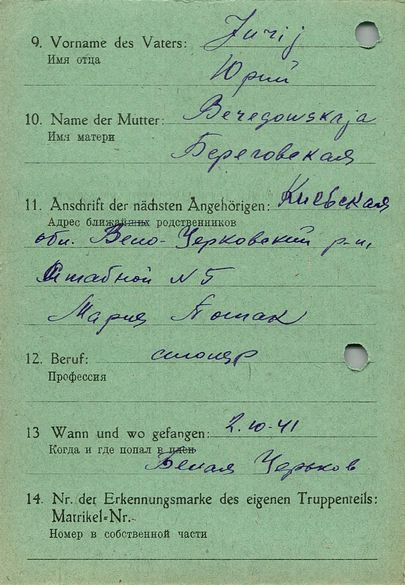 9. Vorname des Vaters: Jurij
Имя отца
Юрий
10. Name der Mutter: Beregowskaja
Имя матери
Береговская
11. Anschrift der nächsten Angehörigen: Киевская
Адрес ближайших родственников
обл. Бело-Церковский р-н
Штабной N 5
Мария Потак
12. Beruf: столяр
Профессия
13 Wann und wo gefangen: 2.10-41
Когда и где попал в плен
Белая Церьков
14. Nr. der Erkennungsmarke des eigenen Truppenteils:
Matrikel-Nr.
Номер в собственной части